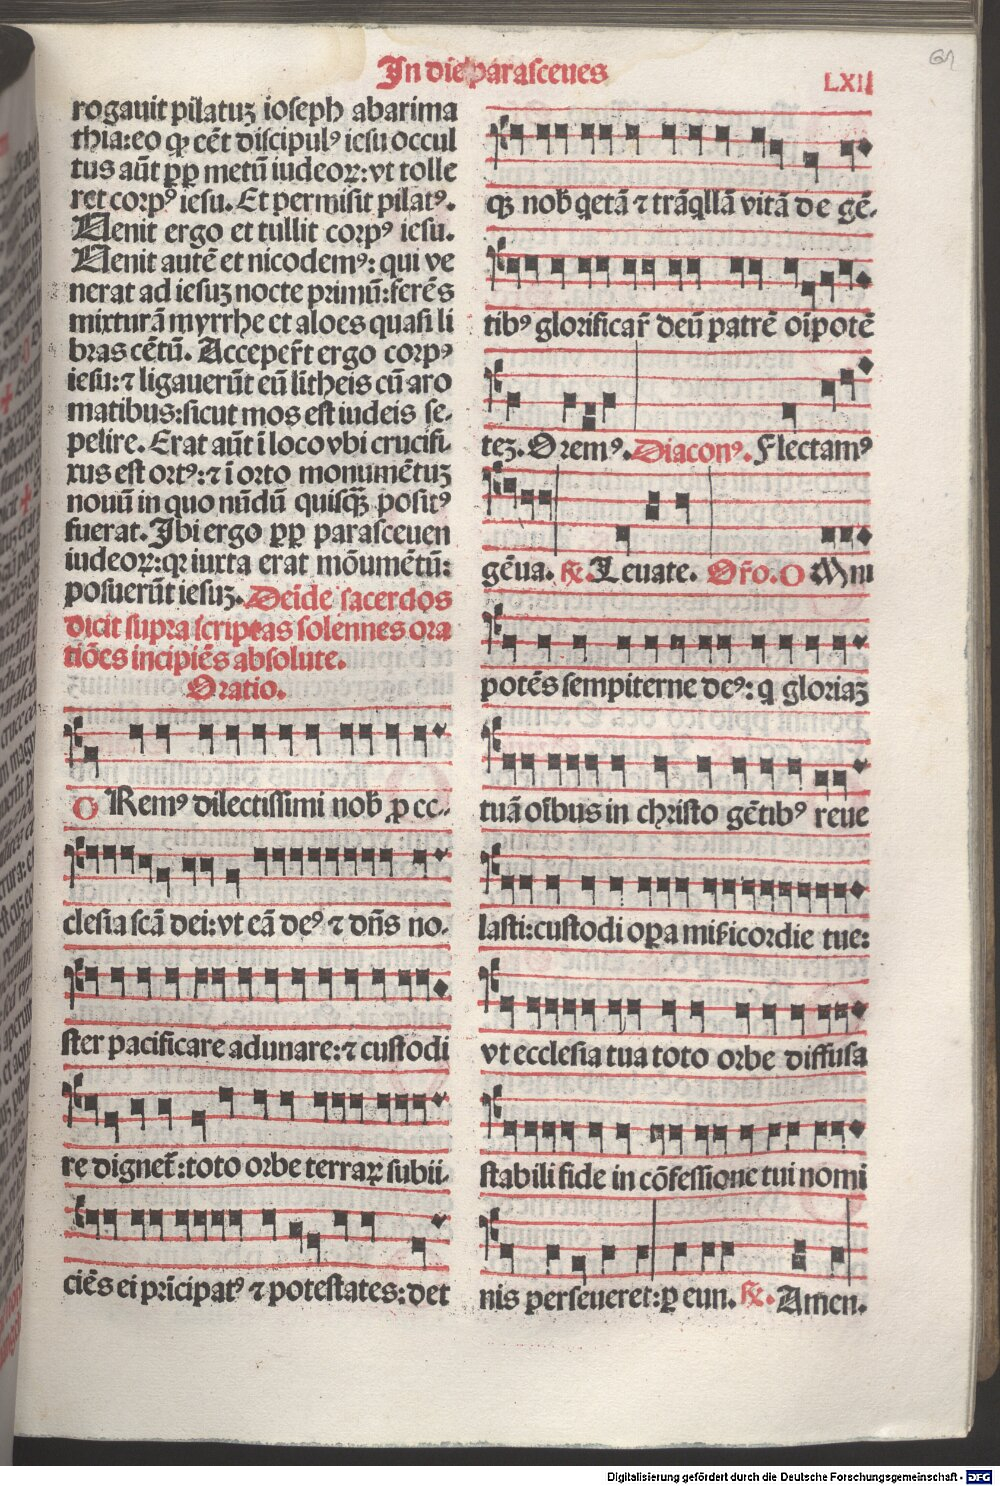 In die parasceues
LXII
61
rogauit pilatuʒ ioseph abarima
thia: eo ꝙ eēt discipulꝰ iesu occul
tus aūt ꝓp metū iudeoꝝ: vt tolle
ret corpꝰ iesu. Et permisit pilatꝰ.
Uenit ergo et tullit corpꝰ iesu.
Uenit autē et nicodemꝰ: qui ve
nerat ad iesuʒ nocte primū: ferēs
mixturā myrrhe et aloes quasi li
bras cētū. Acceper̄t ergo corpꝰ
iesu: ⁊ ligauerūt eū lītheis cū aro
matibus: sicut mos est iudeis se-
pelire. Erat aūt ī loco vbi crucifi
xus est ortꝰ: ⁊ ī orto monumētuʒ
nouū in quo nūdū quisꝗ̄ positꝰ
fuerat. Ibi ergo ꝓp parasceuen
iudeoꝝ: qꝛ iuxta erat mōumētū:
posuerūt iesuʒ. Deīde sacerdos
dicit supra scriptas solennes ora
tiōes incipiēs absolute.
Oratio.
ORemꝰ dilectissimi nob̄ ꝓ ec-
clesia scā dei: vt eā deꝰ ⁊ dn̄s no-
ster pacificare adunare: ⁊ custodi
re dignet̄: toto orbe terraꝝ subii-
ciēs ei prīcipatꝰ ⁊ potestates: det
qꝫ nob̄ q̇etā ⁊ trāq̇llā vitā de gē-
tibꝰ glorificar̄ deū patrē oīpotē
teʒ. Oremꝰ. Diaconꝰ. Flectamꝰ
gēua. ℟. Leuate. Or̄o. OMni
potēs sempiterne deꝰ: q̇ gloriaʒ
tuā oībus in christo gētibꝰ reue
lasti: custodi oꝑa misericordie tue:
vt ecclesia tua toto orbe diffusa
stabili fide in cōfessione tui nomi
nis perseueret: ꝑ eun. ℟. Amen.
Digitalisierung gefördert durch die Deutsche Forschungsgemeinschaft - DFG